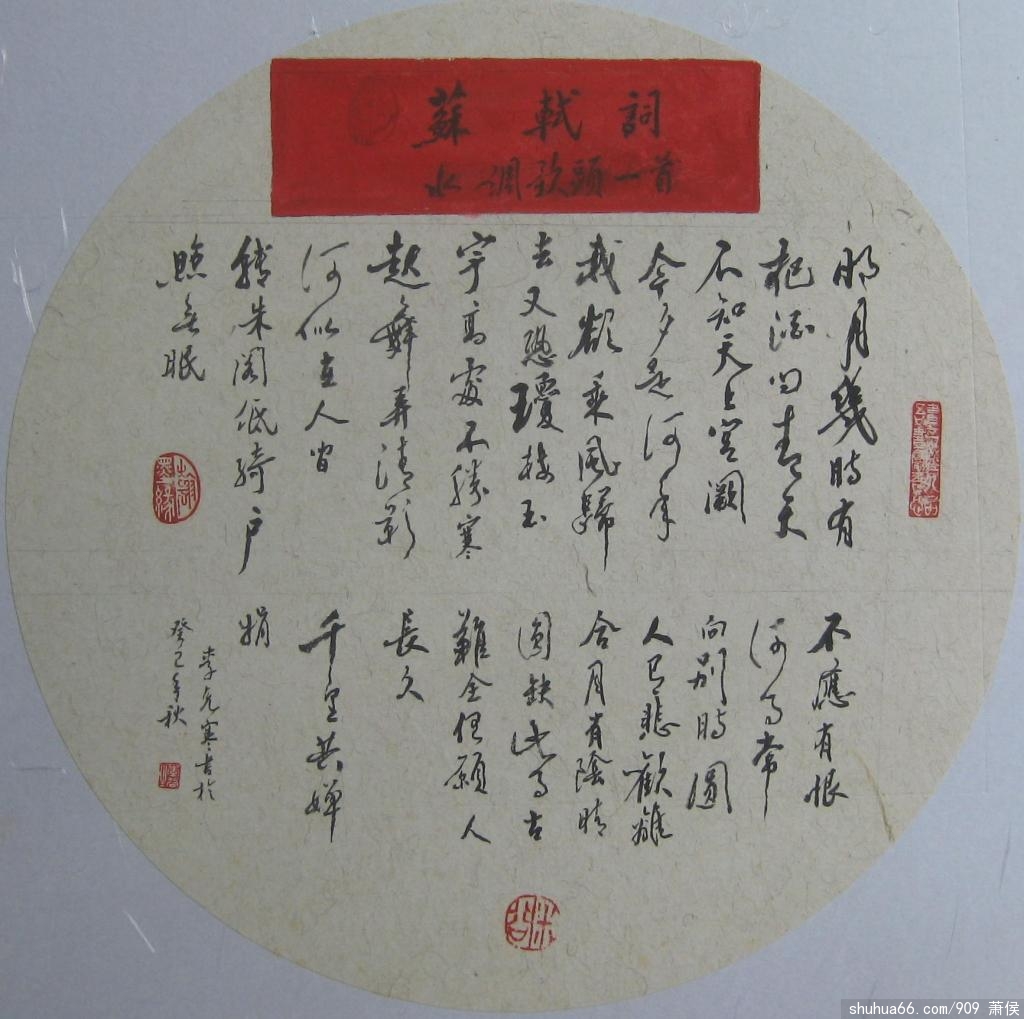 蘇軾詞
水調歌頭一首
明月幾時有
把酒问青天
不知天上宫阙
今夕是何年
我欲乘风歸
去又恐瓊楼玉
宇高處不勝寒
起舞弄清影
何似在人间
转朱阁低绮户
照无眠
不應有恨
何事常
向别时圆
人有悲歡離
合月有陰晴
圆缺此事古
難全但願人
長久
千里共婵
娟
李允寒书於
癸巳年秋
墨缘
shuhua66.com/909 萧侯